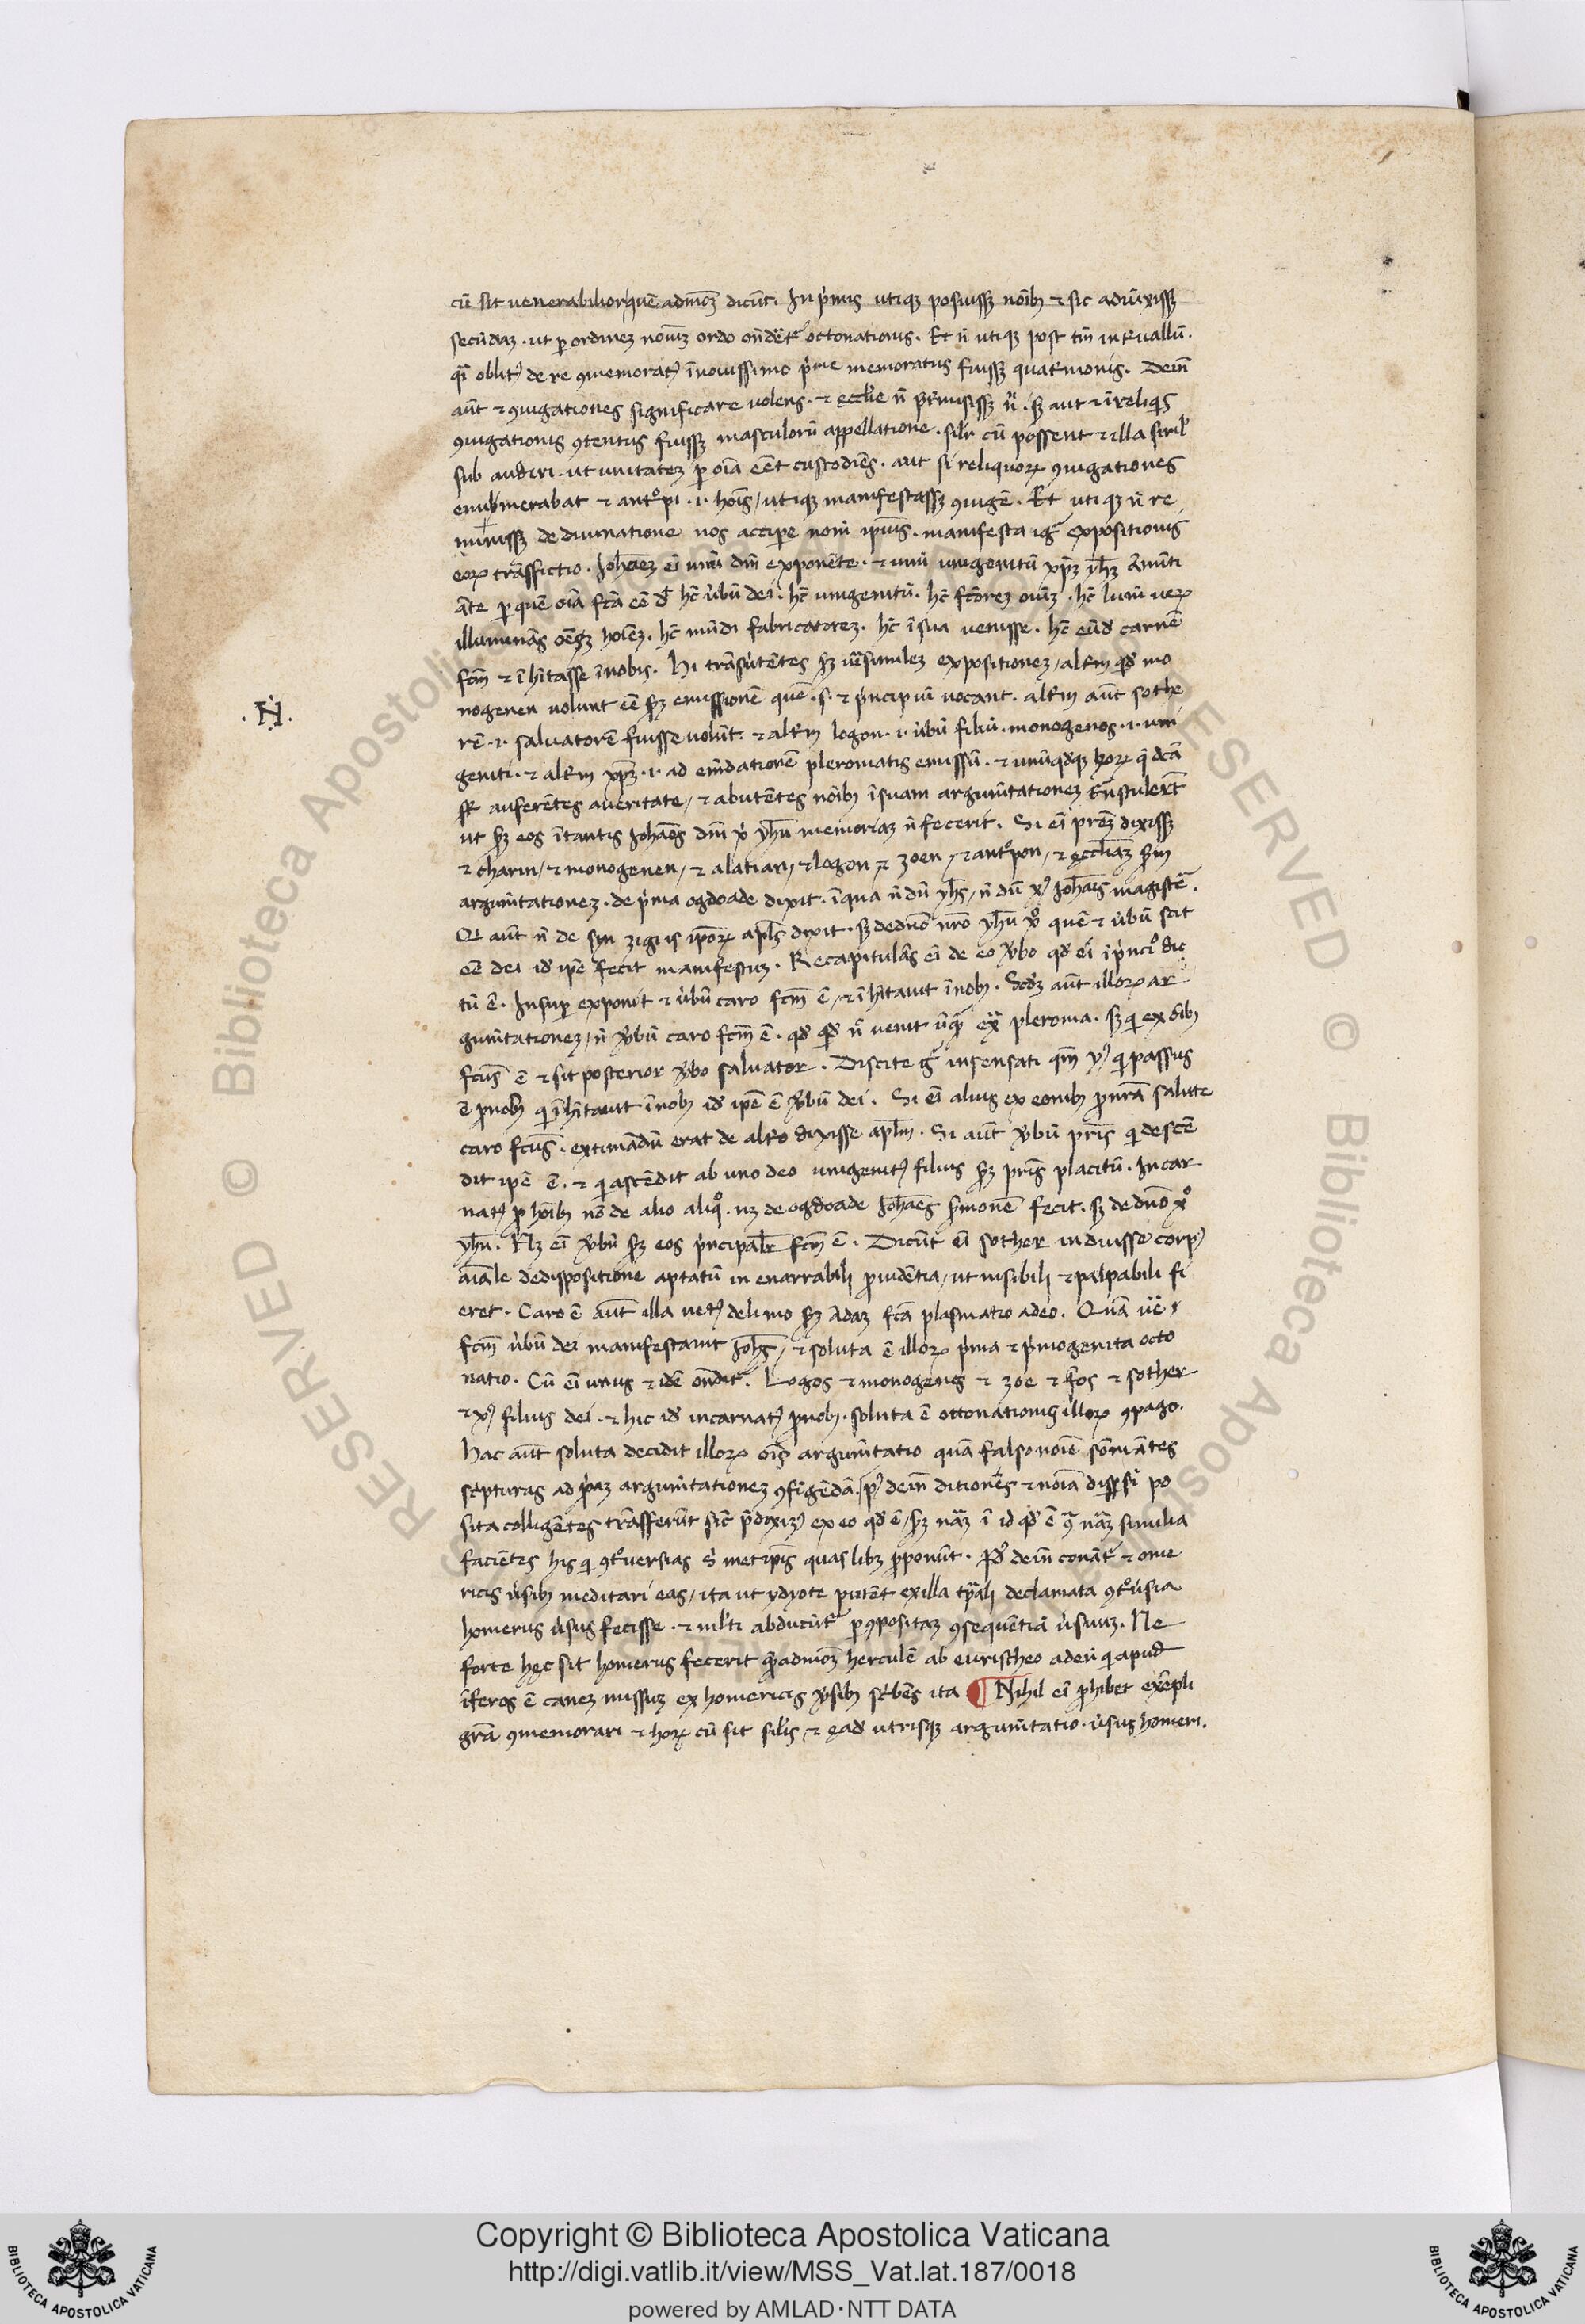 cū sit venerabilior/quē admoꝝ dicūt. In pͥmis utiqꝫ posuissꝫ nōibꝫ ⁊ sic adiūxissꝫ
secūdaꝫ . ut ꝑ ordineꝫ noīuꝫ ordo oñdēt octonationis . Et ñ utiqꝫ post tm̄ intuallū .
oblitꝰ de re ꝯmemoratꝰ ī novissimo pͥme memoratus fuissꝫ quatnionis . Dein̄
aūt ⁊ ꝯiugationes significare volens . ⁊ ecclīe ñ aut ⁊ ī reliqͥs
ꝯiugationis ꝯtentus fuissꝫ masculorū appellatione . silr̄ cū possent ⁊ illa simlͥ
sub audiri . ut unitateꝫ ꝑ oīa eēt custodiēs . aut si reliquoꝝ ꝯiugationes
enumerabat ⁊ antͦpi .i. hoīs / utiqꝫ manifestassꝫ ꝯiugē . Et utiqꝫ ñ re
de divinatione nos accipe nom̄ ipīus . manifesta igͬ expositionis
eoꝝ trāsfictio . Johāeꝫ eī unū dm̄ exponēte . ⁊ unū unigenitū xp̄ꝫ yhꝫ
ꝑ quē oīa fc̄a eē hc̄ ūbū dei . hc̄ unigenitū . hc̄ fc̄oreꝫ oīuꝫ . hc̄ lum̄ veꝝ
illuminās oēꝫ hoīeꝫ . hc̄ mūdi fabricatoreꝫ . hc̄ ī sua venisse . hc̄ eūdꝫ carnē
fcm̄ ⁊ ī hītasse ī nobis . Hi expositioneꝫ / altm qͥdꝫ mo
nogenen volunt eē emissionē quē .s. ⁊ pͥncipiū vocant . altm aūt sothe
rē .i. salvatorē fuisse volūt . ⁊ altm logon .i. ūbū filiū . monogenos .i. uni
geniti . ⁊ altm xp̄ꝫ .i. ad emēdationē pleromatis emissū . ⁊ unūqͦdqꝫ hoꝝ dc̄a
sͭ auferētes a veritate / ⁊ abutētes nōibꝫ ī suam argumētationeꝫ trāstulerūt
ut eos ī tantis Johāēs dnī memoriaꝫ ñ fecerit . Si eī pr̄eꝫ dixissꝫ
⁊ charin / ⁊ monogenen / ⁊ alatian / ⁊ logon ⁊ zoen / ⁊ antͦpon / ⁊ ecclīaꝫ
argumētationeꝫ . de pͥma ogdoade dixit . ī qua ñ dū yhs / ñ dū xͥ Johāīs magistē .
Qͦ aūt ñ de syn zigiis ipoꝝ apls dixit . sꝫ de dnō nrō yhu xͦ quē ⁊ ūbū scit
eē dei idꝫ ipē fecit manifestuꝫ . Recapitulās eī de eo ūbo qͦdꝫ eī ī pͥncͦ dic
tū ē . Insuꝑ exponit ⁊ ūbū caro fcm̄ ē / ⁊ ī hītavit ī nobꝫ . illoꝝ ar
gumētationeꝫ / ñ ūbū caro fcm̄ ē . qͦdꝫ qͥdꝫ ñ venit extͣ pleroma . sꝫ qͥ ex oībꝫ
fcūs ē ⁊ sit posterior ūbo salvator . Discite gͦ insensati qm̄ yͥ qͥ passus
ē ꝓ nobꝫ qͥ ī hītavit ī nobꝫ idꝫ ipē ē ūbū dei . Si eī alius ex eonibꝫ ꝓ nrā salute
caro fcūs . extimādū erat de altͦo dixisse aplm̄ . Si aūt ūbū pr̄is qͥ descē
dit ipē ē . ⁊ qͥ ascēdit ab uno deo unigenitꝰ filius pr̄is placitū . Incar
natꝰ ꝓ hoībꝫ nō de alio aliqͦ . nꝫ de ogdoade Johāēs sͣmonē fecit . sꝫ de dnō xͦ
yhu . Nꝫ eī ūbū eos pͥncipalr̄ fcm̄ ē . Dicūt eī sother induisse corpꝰ
aīale de dispositione aptatū in enarrabili ꝓvidētia / ut visibili ⁊ palpabili fi
eret . Caro ē aūt illa vetꝰ de limo Adaꝫ fc̄a plasmatio a deo . Quā
fcm̄ ūbū dei manifestavit Johs / ⁊ soluta ē illoꝝ pͥma ⁊ pͥmogenita octo
natio . Cū eī unus ⁊ idē ondit . Logos ⁊ monogenis ⁊ zoe ⁊ fos ⁊ sother
⁊ xͥ filius dei . ⁊ hic idꝫ incarnatꝰ ꝓ nobꝫ . soluta ē octonationis illoꝝ ꝯpago .
Hac aūt soluta decidit illoꝝ oīs argumētatio quā falso noīe somniātes
scͥpturas ad pͥaꝫ argumētationeꝫ ꝯfigēdā . pꝰ dein̄ ditionēs ⁊ noīa disꝑsī po
sita colligētes trāsferūt sic̄ pͣdiximꝰ ex eo qͦdꝫ ē / nāꝫ ī id qͦdꝫ ē nāꝫ similia
faciētes his qͥ ꝯtͦversias sͥ metipīs quaslibꝫ ꝓponūt . dein̄ conāt ⁊ ome
ricis ūsibꝫ meditari eas / ita ut ydyote putēt ex illa tꝑali declamata ꝯtͦūsia
homerus ūsus fecisse . ⁊ mlti abducūt ꝑ ꝯpositaꝫ ꝯsequētiā ūsuuꝫ . Ne
forte hęc sit homerus fecerit qͣadmoꝫ herculē ab euristheo ad eū qͥ apud
īferos ē caneꝫ missuꝫ ex homericis ūsibꝫ scͥbēs ita ¶ Nihil eī ꝓhibet exēpli
grā ꝯmemorari ⁊ hoꝝ cū sit silis ⁊ eadꝫ utrisqꝫ argumētatio . ūsus homeri .
.N.
Copyright © Biblioteca Apostolica Vaticana
http://digi.vatlib.it/view/MSS_Vat.lat.187/0018
powered by AMLAD·NTT DATA
BIBLIOTECA APOSTOLICA VATICANA
BIBLIOTECA APOSTOLICA VATICANA